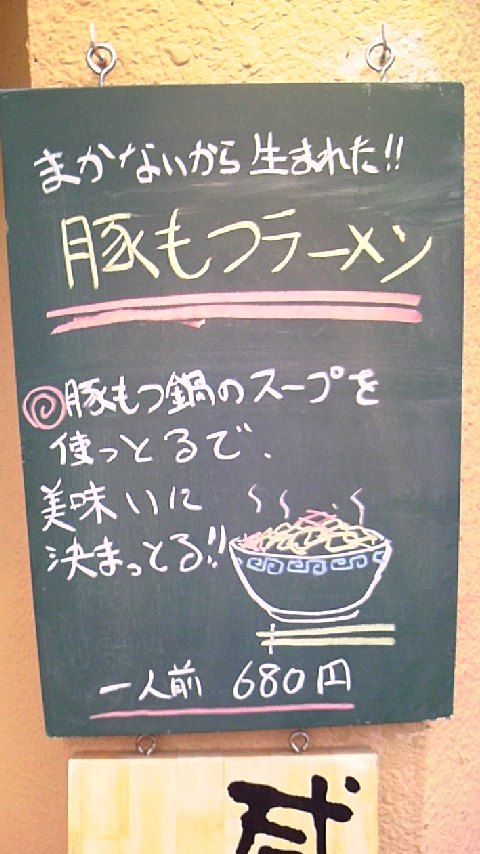 まかないから生まれた!!
豚もつラーメン
豚もつ鍋のスープを
使っとるで、
美味いに
決まっとる!!
一人前 680円